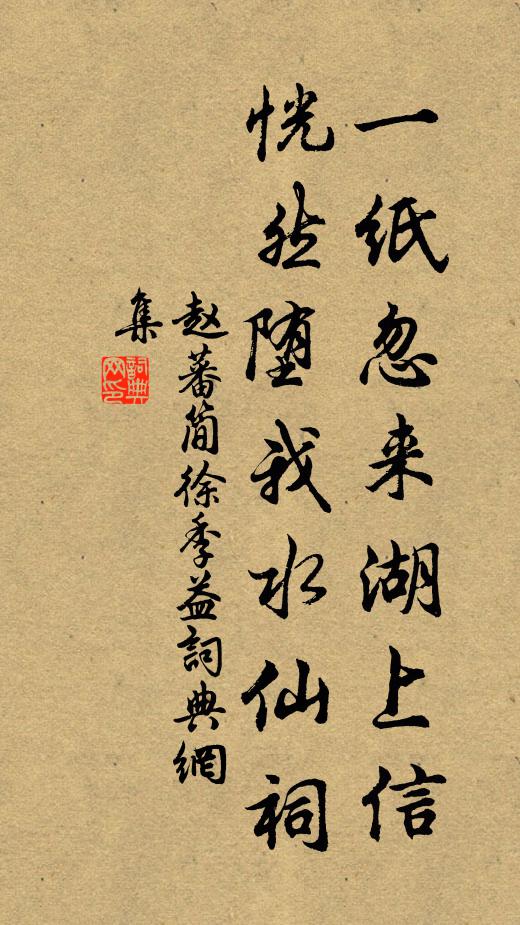 一纸忽来湖上信
恍然堕我水仙祠
赵蕃简徐季益詞典網
集
詞典
网印